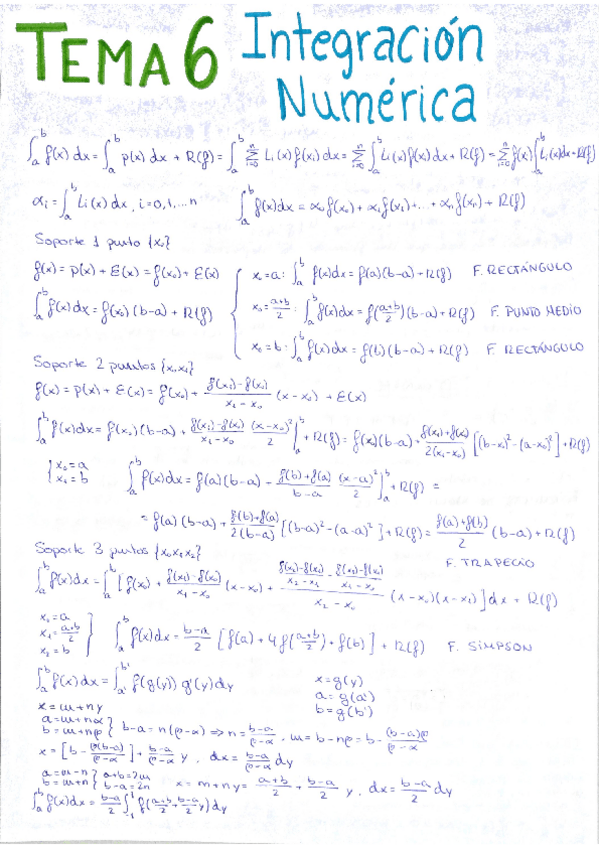 TEMA 6 Integración Numérica
∫_a^b f(x) dx = ∫_a^b p(x) dx + R(f) = ∫_a^b Σ_{i=0}^n L_i(x) f(x_i) dx = Σ_{i=0}^n ∫_a^b L_i(x) f(x_i) dx + R(f) = Σ_{i=0}^n f(x_i) ∫_a^b L_i(x) dx + R(f)
α_i = ∫_a^b L_i(x) dx, i=0,1,...n ∫_a^b f(x)dx = α_0 f(x_0) + α_1 f(x_1) + ... + α_n f(x_n) + R(f)
Soporte 1 punto {x_0}
f(x) = p(x) + E(x) = f(x_0) + E(x)
∫_a^b f(x)dx = f(x_0)(b-a) + R(f)
x_0 = a: ∫_a^b f(x)dx = f(a)(b-a) + R(f) F. RECTÁNGULO
x_0 = (a+b)/2 : ∫_a^b f(x)dx = f((a+b)/2)(b-a) + R(f) F. PUNTO MEDIO
x_0 = b: ∫_a^b f(x)dx = f(b)(b-a) + R(f) F. RECTÁNGULO
Soporte 2 puntos {x_0 x_1}
f(x) = p(x) + E(x) = f(x_0) + (f(x_1)-f(x_0))/(x_1-x_0) (x-x_0) + E(x)
∫_a^b f(x)dx = f(x_0)(b-a) + (f(x_1)-f(x_0))/(x_1-x_0) (x-x_0)²/2 ]_a^b + R(f) = f(x_0)(b-a) + (f(x_1)+f(x_0))/(2(x_1-x_0)) [(b-x_0)²-(a-x_0)²] + R(f)
{ x_0 = a
x_1 = b
∫_a^b f(x)dx = f(a)(b-a) - (f(b)+f(a))/(b-a) (x-a)²/2 ]_a^b + R(f) =
= f(a)(b-a) + (f(b)+f(a))/(2(b-a)) [(b-a)²-(a-a)²] + R(f) = (f(a)+f(b))/2 (b-a) + R(f)
F. TRAPECIO
Soporte 3 puntos {x_0 x_1 x_2}
∫_a^b f(x)dx = ∫_a^b [f(x_0) + (f(x_1)-f(x_0))/(x_1-x_0) (x-x_0) + ((f(x_2)-f(x_1))/(x_2-x_1) - (f(x_1)-f(x_0))/(x_1-x_0))/(x_2-x_0) (x-x_0)(x-x_1)] dx + R(f)
x_0 = a
x_1 = (a+b)/2
x_2 = b
∫_a^b f(x)dx = (b-a)/2 [f(a) + 4f((a+b)/2) + f(b)] + R(f) F. SIMPSON
∫_a^b f(x)dx = ∫_{a'}^{b'} f(g(y)) g'(y)dy
x = g(y)
a = g(a')
b = g(b')
x = m + ny
a = m+nα
b = m+nρ } b-a = n(ρ-α) ⇒ n = (b-a)/(ρ-α), m = b-nρ = b- (b-a)ρ/(ρ-α)
x = [b - ρ(b-a)/(ρ-α)] + (b-a)/(ρ-α) y, dx = (b-a)/(ρ-α) dy
a = m-n } a+b = 2m
b = m+n } b-a = 2n x = m+ny = (a+b)/2 + (b-a)/2 y, dx = (b-a)/2 dy
∫_a^b f(x)dx = (b-a)/2 ∫_{-1}^1 f((a+b)/2, (b-a)/2 y)dy